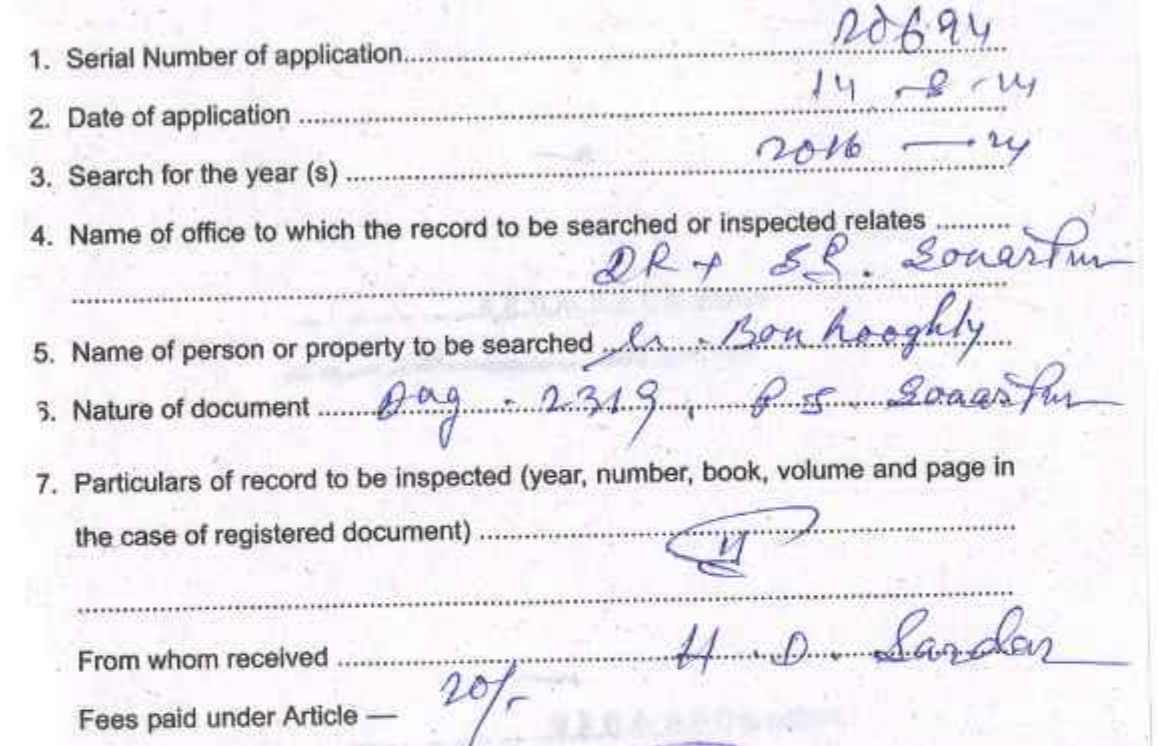 1. Serial Number of application.......... 20694
2. Date of application .......... 14 - 8 - 24
3. Search for the year (s) .......... 2016 — 24
4. Name of office to which the record to be searched or inspected relates ..........
DR + SR. Sonarpur
5. Name of person or property to be searched .......... Bon hooghly
6. Nature of document .......... Dag - 2319, P.S. Sonarpur
7. Particulars of record to be inspected (year, number, book, volume and page in
the case of registered document) ..........
From whom received .......... H. D. Sardar
Fees paid under Article — 20/-